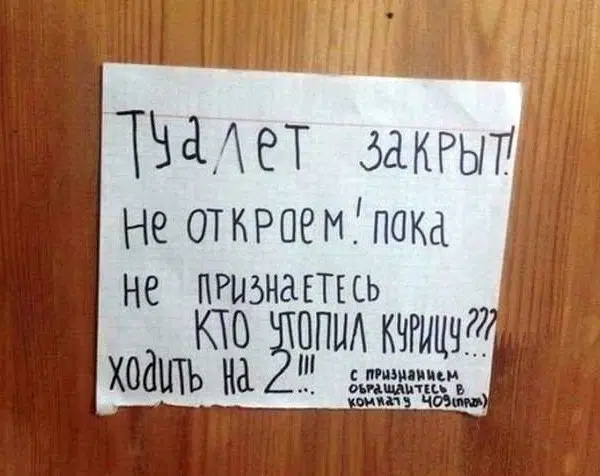 Туалет закрыт!
не откроем! пока
не признаетесь
кто утопил курицу???
ходить на 2!!!
с признанием
обращайтесь в
комнату 409(прав)